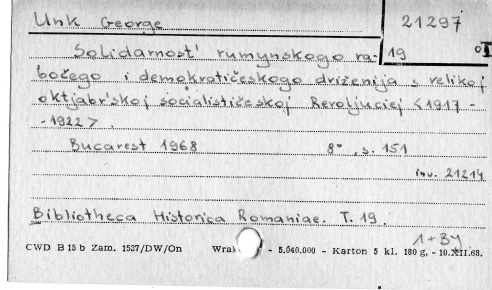 Unk George
21297
Solidarnost' rumynskogo ra-
19
bočego i demokratičeskogo driženija s velikoj
oktjabr'skoj socialističeskoj Revoljuciej <1917 -
- 1922>.
Bucarest 1968 8°, s. 151
inv. 21214
Bibliotheca Historica Romaniae. T. 19.
1+By
CWD B 15 b Zam. 1537/DW/On - 5.040.000 - Karton 5 kl. 180 g, - 10.XII.68.